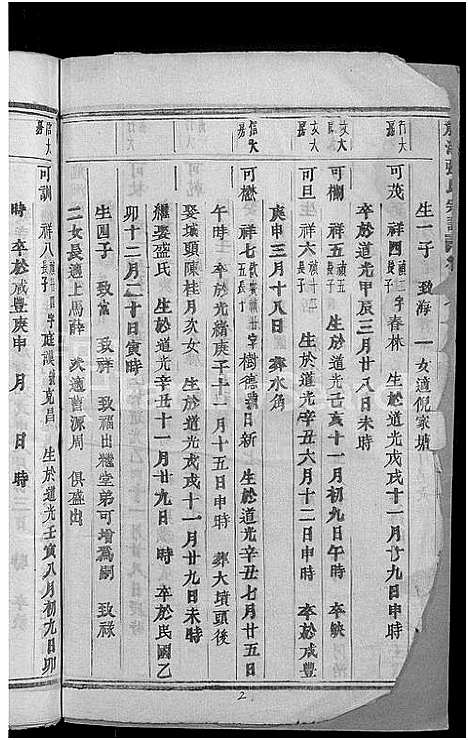 生一子 致海 一女適倪家塘
行大 可茂 祥四 長子 禎二 字春林 生於道光戊戌十一月廿九日申時
卒於道光甲辰三月廿八日未時
文大 可欄 祥五 生於道光己亥十一月初九日午時 卒缺
文大 可旦 祥六 生於道光辛丑六月十二日申時 卒於咸豐
庚申三月十八日 葬水角
信大 可楙 祥七 字樹德 號日新 生於道光辛丑七月廿五日
午時 卒於光緒庚子十二月十五日申時 葬大墳頭後
娶城頭陳桂月次女 生於道光戊戌十一月廿九日未時
繼娶盛氏 生於道光辛丑十一月廿九日 時 卒於民國乙
卯十二月二十日寅時
生四子 致富 致祥 致福出繼堂弟可增爲嗣 致祿
二女長適上馬薛 次適曹源周 俱盛出
信大 可訓 祥八 長子 字庭謨 號克昌 生於道光壬寅八月初九日卯
時 卒於咸豐庚申 月 日 時
2